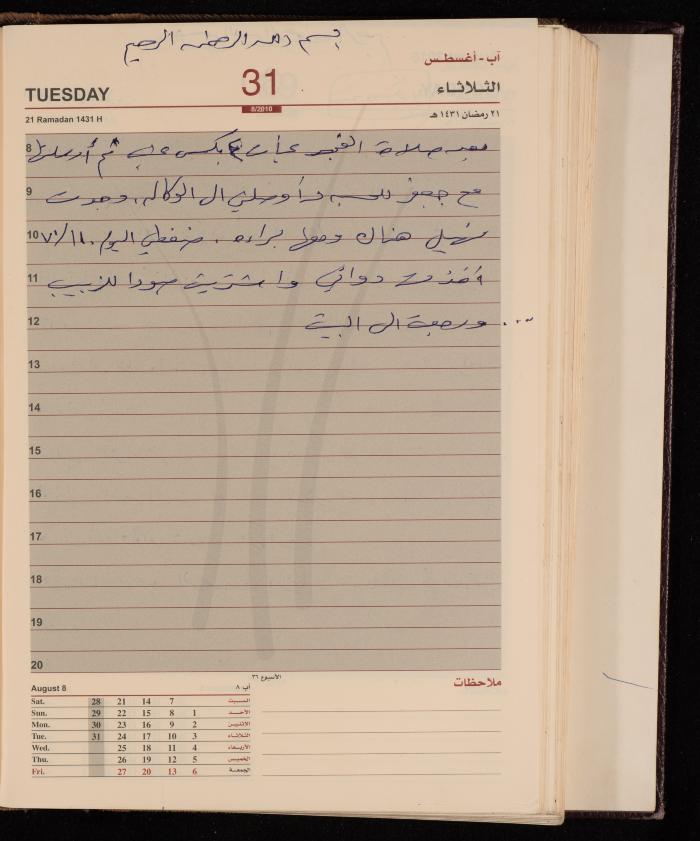 بسم الله الرحمن الرحيم
آب - أغسطس
TUESDAY 31 الثلاثاء
8/2010
21 Ramadan 1431 H ٢١ رمضان ١٤٣١ هـ
8 بعد صلاة الفجر عبأت بكس عنب ثم أرسلتها
9 مع جعفر للحسبة وأوصلني الى الوكالة، وجدت
10 سهيل هناك ومعها براءه. ضغطي اليوم ٧٠/١١٠
11 أخذت دوائي واشتريت صودا للزبيب
12 ورجعت الى البيت ...
13
14
15
16
17
18
19
20
August 8 آب ٨ الأسبوع ٣٦
ملاحظات
Sat. 28 21 14 7 السبت
Sun. 29 22 15 8 1 الأحد
Mon. 30 23 16 9 2 الاثنين
Tue. 31 24 17 10 3 الثلاثاء
Wed. 25 18 11 4 الأربعاء
Thu. 26 19 12 5 الخميس
Fri. 27 20 13 6 الجمعة